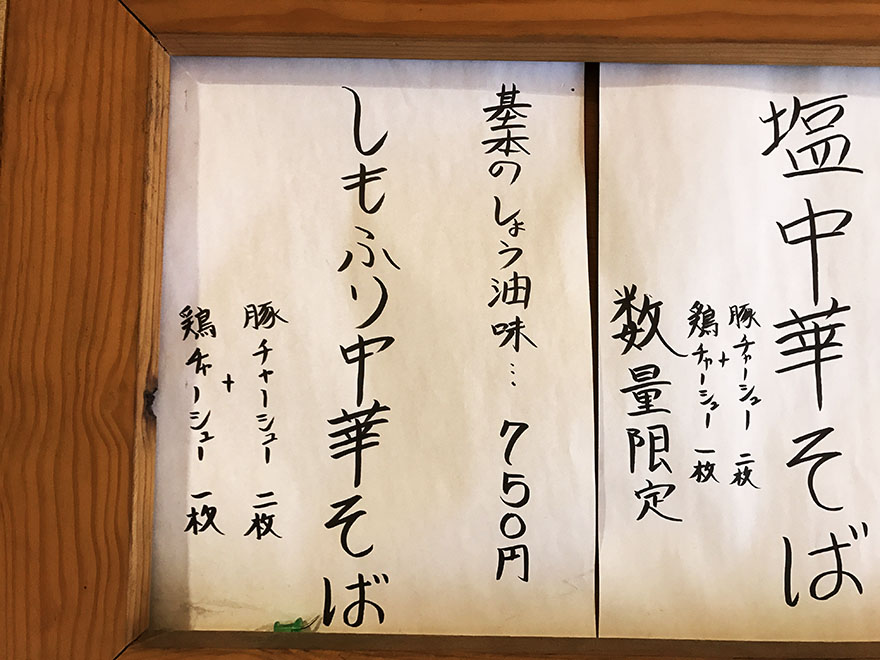 塩中華そば
豚チャーシュー 二枚
+
鶏チャーシュー 一枚
数量限定
基本のしょう油味… 750円
しもふり中華そば
豚チャーシュー 二枚
+
鶏チャーシュー 一枚